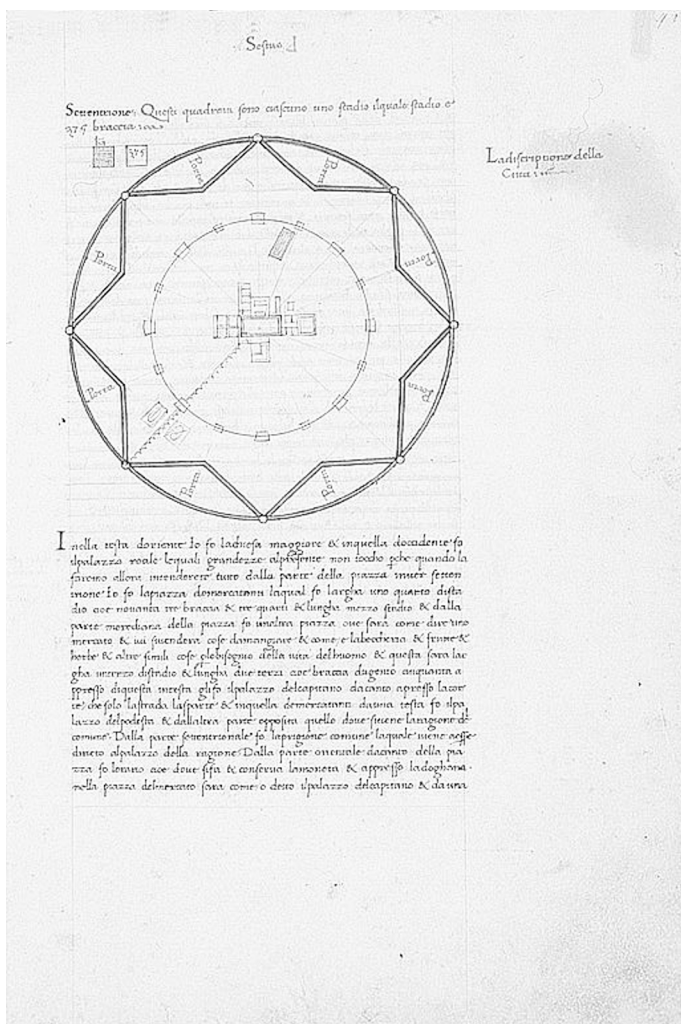 Sestus
Settentrione: Questi quadretti sono ciascuno uno stadio ilquale stadio e'
375 braccia
375
La discriptione della
Citta
Porta
Porta
Porta
Porta
Porta
Porta
Porta
Porta
Inella testa doriente Io fo lachiesa maggiore & inquella doccidente fo
ilpalazzo reale lequali grandezze alpresente non toccho pche quando la
faremo allora intenderete tutto dalla parte della piazza inver setten
trione Io fo lapiazza demercatanti laqual fo largha uno quarto dista
dio cioe novanta tre braccia & tre quarti & lungha mezzo stadio & dalla
parte meridiana della piazza fo unaltra piazza che sara come dire uno
mercato & ivi sivendera cose damangiare & come e labeccheria & frutte &
herbe & altre simili cose chebisogno della vita delhuomo & questa sara lar
gha unterzo distadio & lungha due terzi cioe braccia dugento cinquanta a
ppresso diquesta intesta glifo ilpalazzo delcapitano dacanto apresso lacor
te che solo lastrada lasparte & inquella demercatanti dauna testa fo ilpa
lazzo delpodesta & dallaltra parte opposita quello dove sitiene laragione del
comune. Dalla parte settentrionale fo laprigione comune laquale viene
dirieto alpalazzo della ragione Dalla parte orientale dacanto della pia
zza fo lerario cioe dove sifa & conserva lamoneta & appresso ladoghana
nella piazza delmercato sara come o detto ilpalazzo delcapitano & dauna